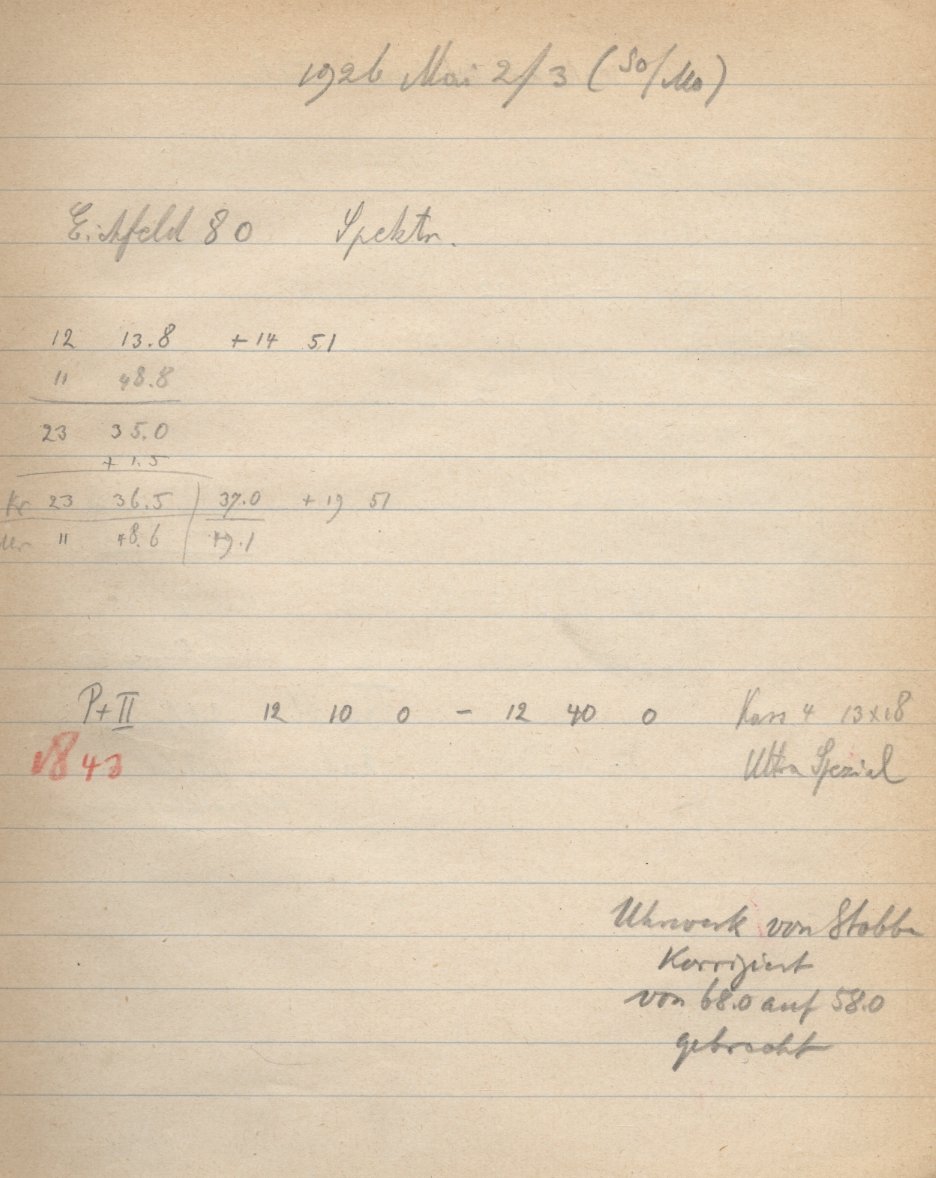 1926 Mai 2/3 (So/Mo)
Eichfeld 80 Spektr.
12 13.8 +14 51
11 48.8
23 35.0
+1.5
Kr 23 36.5 37.0 +19 51
Ur 11 48.6 49.1
P+II 12 10 0 - 12 40 0 Kass 4 13x18
843 Ultra Spezial
Uhrwerk von Stobbe
Korrigiert
von 68.0 auf 58.0
gebracht